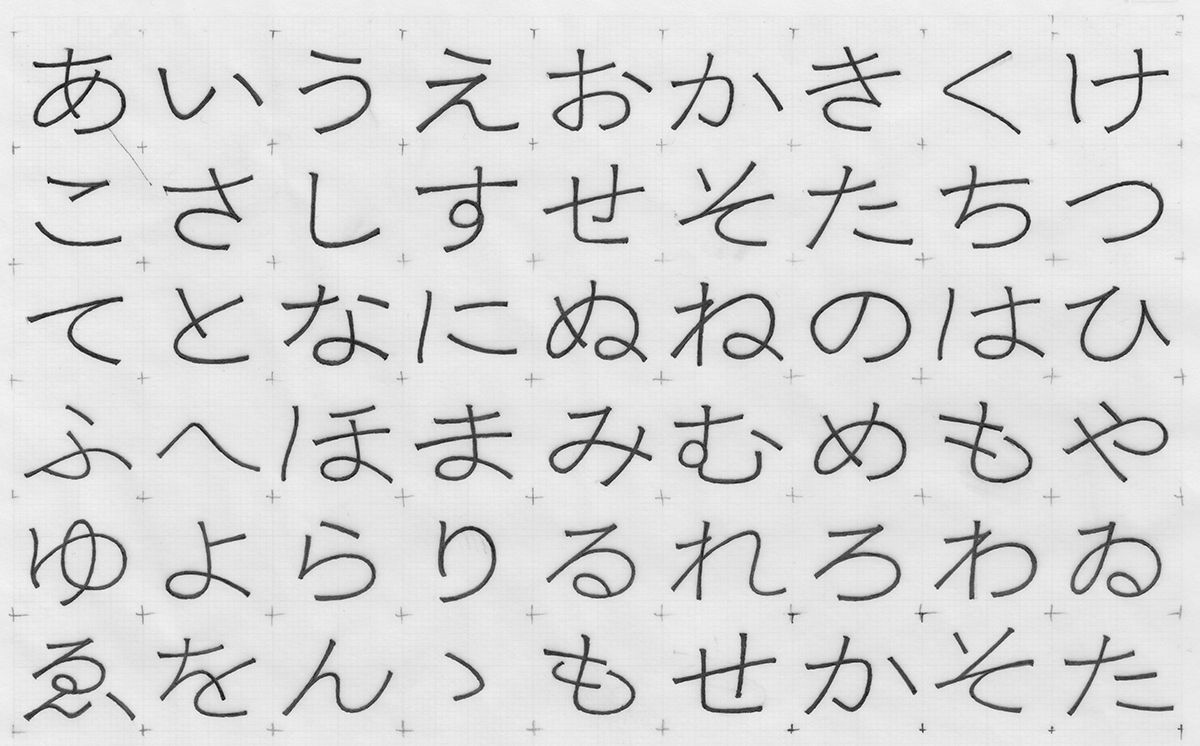 あいうえおかきくけ
こさしすせそたちつ
てとなにぬねのはひ
ふへほまみむめもや
ゆよらりるれろわゐ
ゑをんゝもせかそた